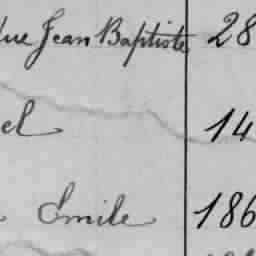 que Jean Baptiste 28
el 14
Emile 186